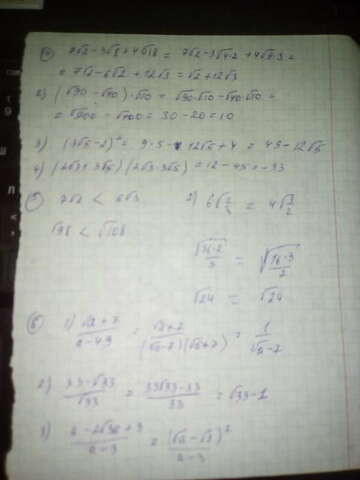 ④ 7√2 - 3√8 + 4√18 = 7√2 - 3√4·2 + 4√9·3 =
= 7√2 - 6√2 + 12√3 = √2 + 12√3
2) (√90 - √40)·√10 = √90·√10 - √40·√10 =
= √900 - √400 = 30 - 20 = 10
3) (3√5 - 2)² = 9·5 - 12√5 + 4 = 49 - 12√5
4) (2√3 + 3√5)(2√3 - 3√5) = 12 - 45 = -33
⑤ 7√2 < 6√3 2) 6√2/3 = 4√3/2
√98 < √108 √36·2/3 = √16·3/2
√24 = √24
⑥ 1) √a + 7 / a - 49 = √a + 7 / (√a - 7)(√a + 7) = 1 / √a - 7
2) 33 - √33 / √33 = 33√33 - 33 / 33 = √33 - 1
3) a - 2√3a + 3 / a - 3 = (√a - √3)² / a - 3